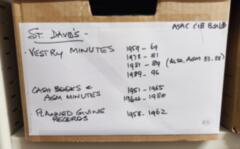 ST. DAVID'S -
- VESTRY MINUTES 1959 - 69
1978 - 81
1981 - 89 (ALSO AGM 83-88)
1989 - 96
CASH BOOKS &
AGM MINUTES 1951 - 1965
1980
PLANNED GIVING
RECORDS 1958 - 1962